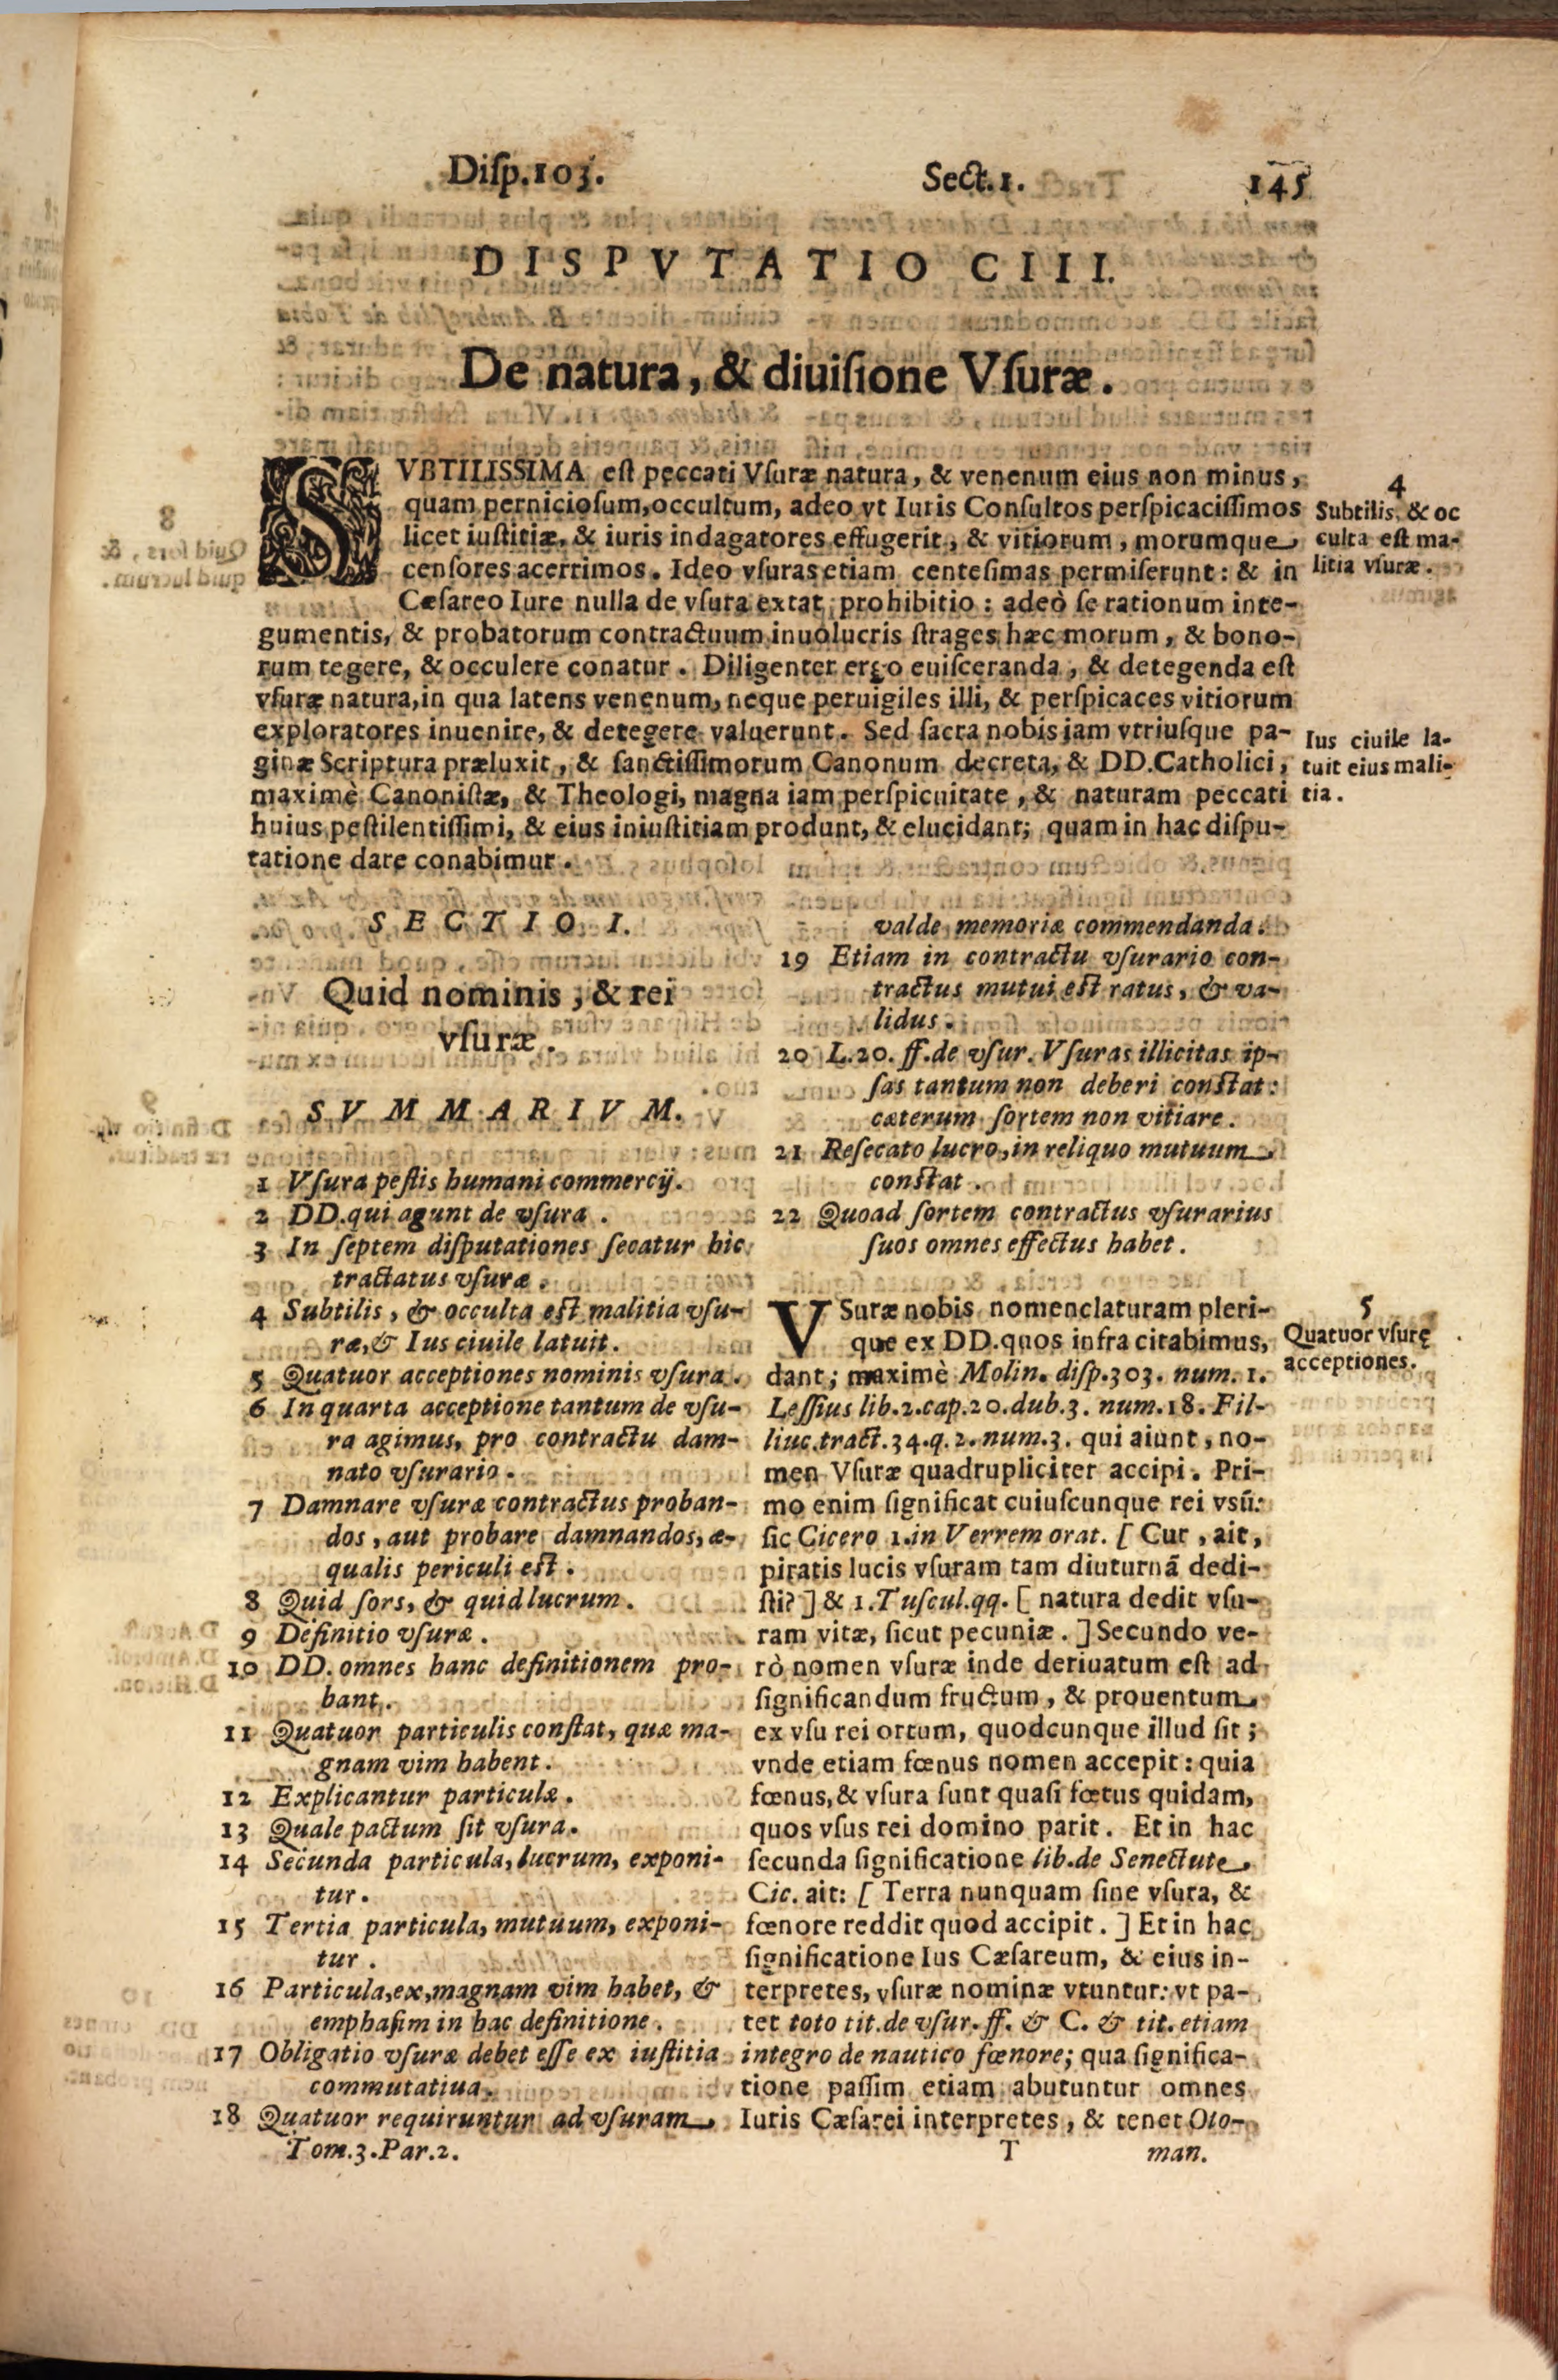 Disp.103.
Sect.1.
145
DISPVTATIO CIII.
De natura, & diuisione Vsuræ.
SVBTILISSIMA est peccati Vsuræ natura, & venenum eius non minus,
quam perniciosum, occultum, adeo vt Iuris Consultos perspicacissimos
licet iustitiæ, & iuris indagatores effugerit, & vitiorum, morumque
censores acerrimos. Ideo vsuras etiam centesimas permiserunt: & in
Cæsareo Iure nulla de vsura extat prohibitio: adeò se rationum inte-
gumentis, & probatorum contractuum inuolucris strages hæc morum, & bono-
rum tegere, & occulere conatur. Diligenter ergo euisceranda, & detegenda est
vsuræ natura, in qua latens venenum, neque peruigiles illi, & perspicaces vitiorum
exploratores inuenire, & detegere valuerunt. Sed sacra nobis iam vtriusque pa-
ginæ Scriptura præluxit, & sanctissimorum Canonum decreta, & DD.Catholici,
maximè Canonistæ, & Theologi, magna iam perspicuitate, & naturam peccati
huius pestilentissimi, & eius iniustitiam produnt, & elucidant; quam in hac dispu-
tatione dare conabimur.
4
Subtilis, & oc
culta est ma-
litia vsuræ.
Ius ciuile la-
tuit eius mali-
tia.
SECTIO I.
Quid nominis, & rei
vsuræ.
SVMMARIVM.
1 Vsura pestis humani commercij.
2 DD.qui agunt de vsura.
3 In septem disputationes secatur hic
tractatus vsuræ.
4 Subtilis, & occulta est malitia vsu-
ræ, & Ius ciuile latuit.
5 Quatuor acceptiones nominis vsura.
6 In quarta acceptione tantum de vsu-
ra agimus, pro contractu dam-
nato vsurario.
7 Damnare vsuræ contractus proban-
dos, aut probare damnandos, æ-
qualis periculi est.
8 Quid sors, & quid lucrum.
9 Definitio vsuræ.
10 DD. omnes hanc definitionem pro-
bant.
11 Quatuor particulis constat, quæ ma-
gnam vim habent.
12 Explicantur particulæ.
13 Quale pactum sit vsura.
14 Secunda particula, lucrum, exponi-
tur.
15 Tertia particula, mutuum, exponi-
tur.
16 Particula, ex, magnam vim habet, &
emphasim in hac definitione.
17 Obligatio vsuræ debet esse ex iustitia
commutatiua.
18 Quatuor requiruntur ad vsuram
Tom.3.Par.2.
valde memoriæ commendanda.
19 Etiam in contractu vsurario con-
tractus mutui est ratus, & va-
lidus.
20 L.20. ff.de vsur. Vsuras illicitas ip-
sas tantum non deberi constat:
cæterum sortem non vitiare.
21 Resecato lucro, in reliquo mutuum
constat.
22 Quoad sortem contractus vsurarius
suos omnes effectus habet.
VSuræ nobis nomenclaturam pleri-
que ex DD.quos infra citabimus,
dant; maximè Molin. disp.303. num. 1.
Lessius lib.2.cap.20.dub.3. num.18. Fil-
liuc.tract.34.q.2.num.3. qui aiunt, no-
men Vsuræ quadrupliciter accipi. Pri-
mo enim significat cuiuscunque rei vsũ:
sic Cicero 1.in Verrem orat. [ Cur, ait,
piratis lucis vsuram tam diuturnã dedi-
sti? ] & 1.Tuscul.qq. [ natura dedit vsu-
ram vitæ, sicut pecuniæ. ] Secundo ve-
rò nomen vsuræ inde deriuatum est ad
significandum fructum, & prouentum
ex vsu rei ortum, quodcunque illud sit;
vnde etiam fœnus nomen accepit: quia
fœnus, & vsura sunt quasi fœtus quidam,
quos vsus rei domino parit. Et in hac
secunda significatione lib.de Senectute
Cic. ait: [ Terra nunquam sine vsura, &
fœnore reddit quod accipit. ] Et in hac
significatione Ius Cæsareum, & eius in-
terpretes, vsuræ nominæ vtuntur: vt pa-
tet toto tit.de vsur. ff. & C. & tit. etiam
integro de nautico fœnore; qua significa-
tione passim etiam abutuntur omnes
Iuris Cæsarei interpretes, & tenet Oto-
T
man.
5
Quatuor vsurę
acceptiones.